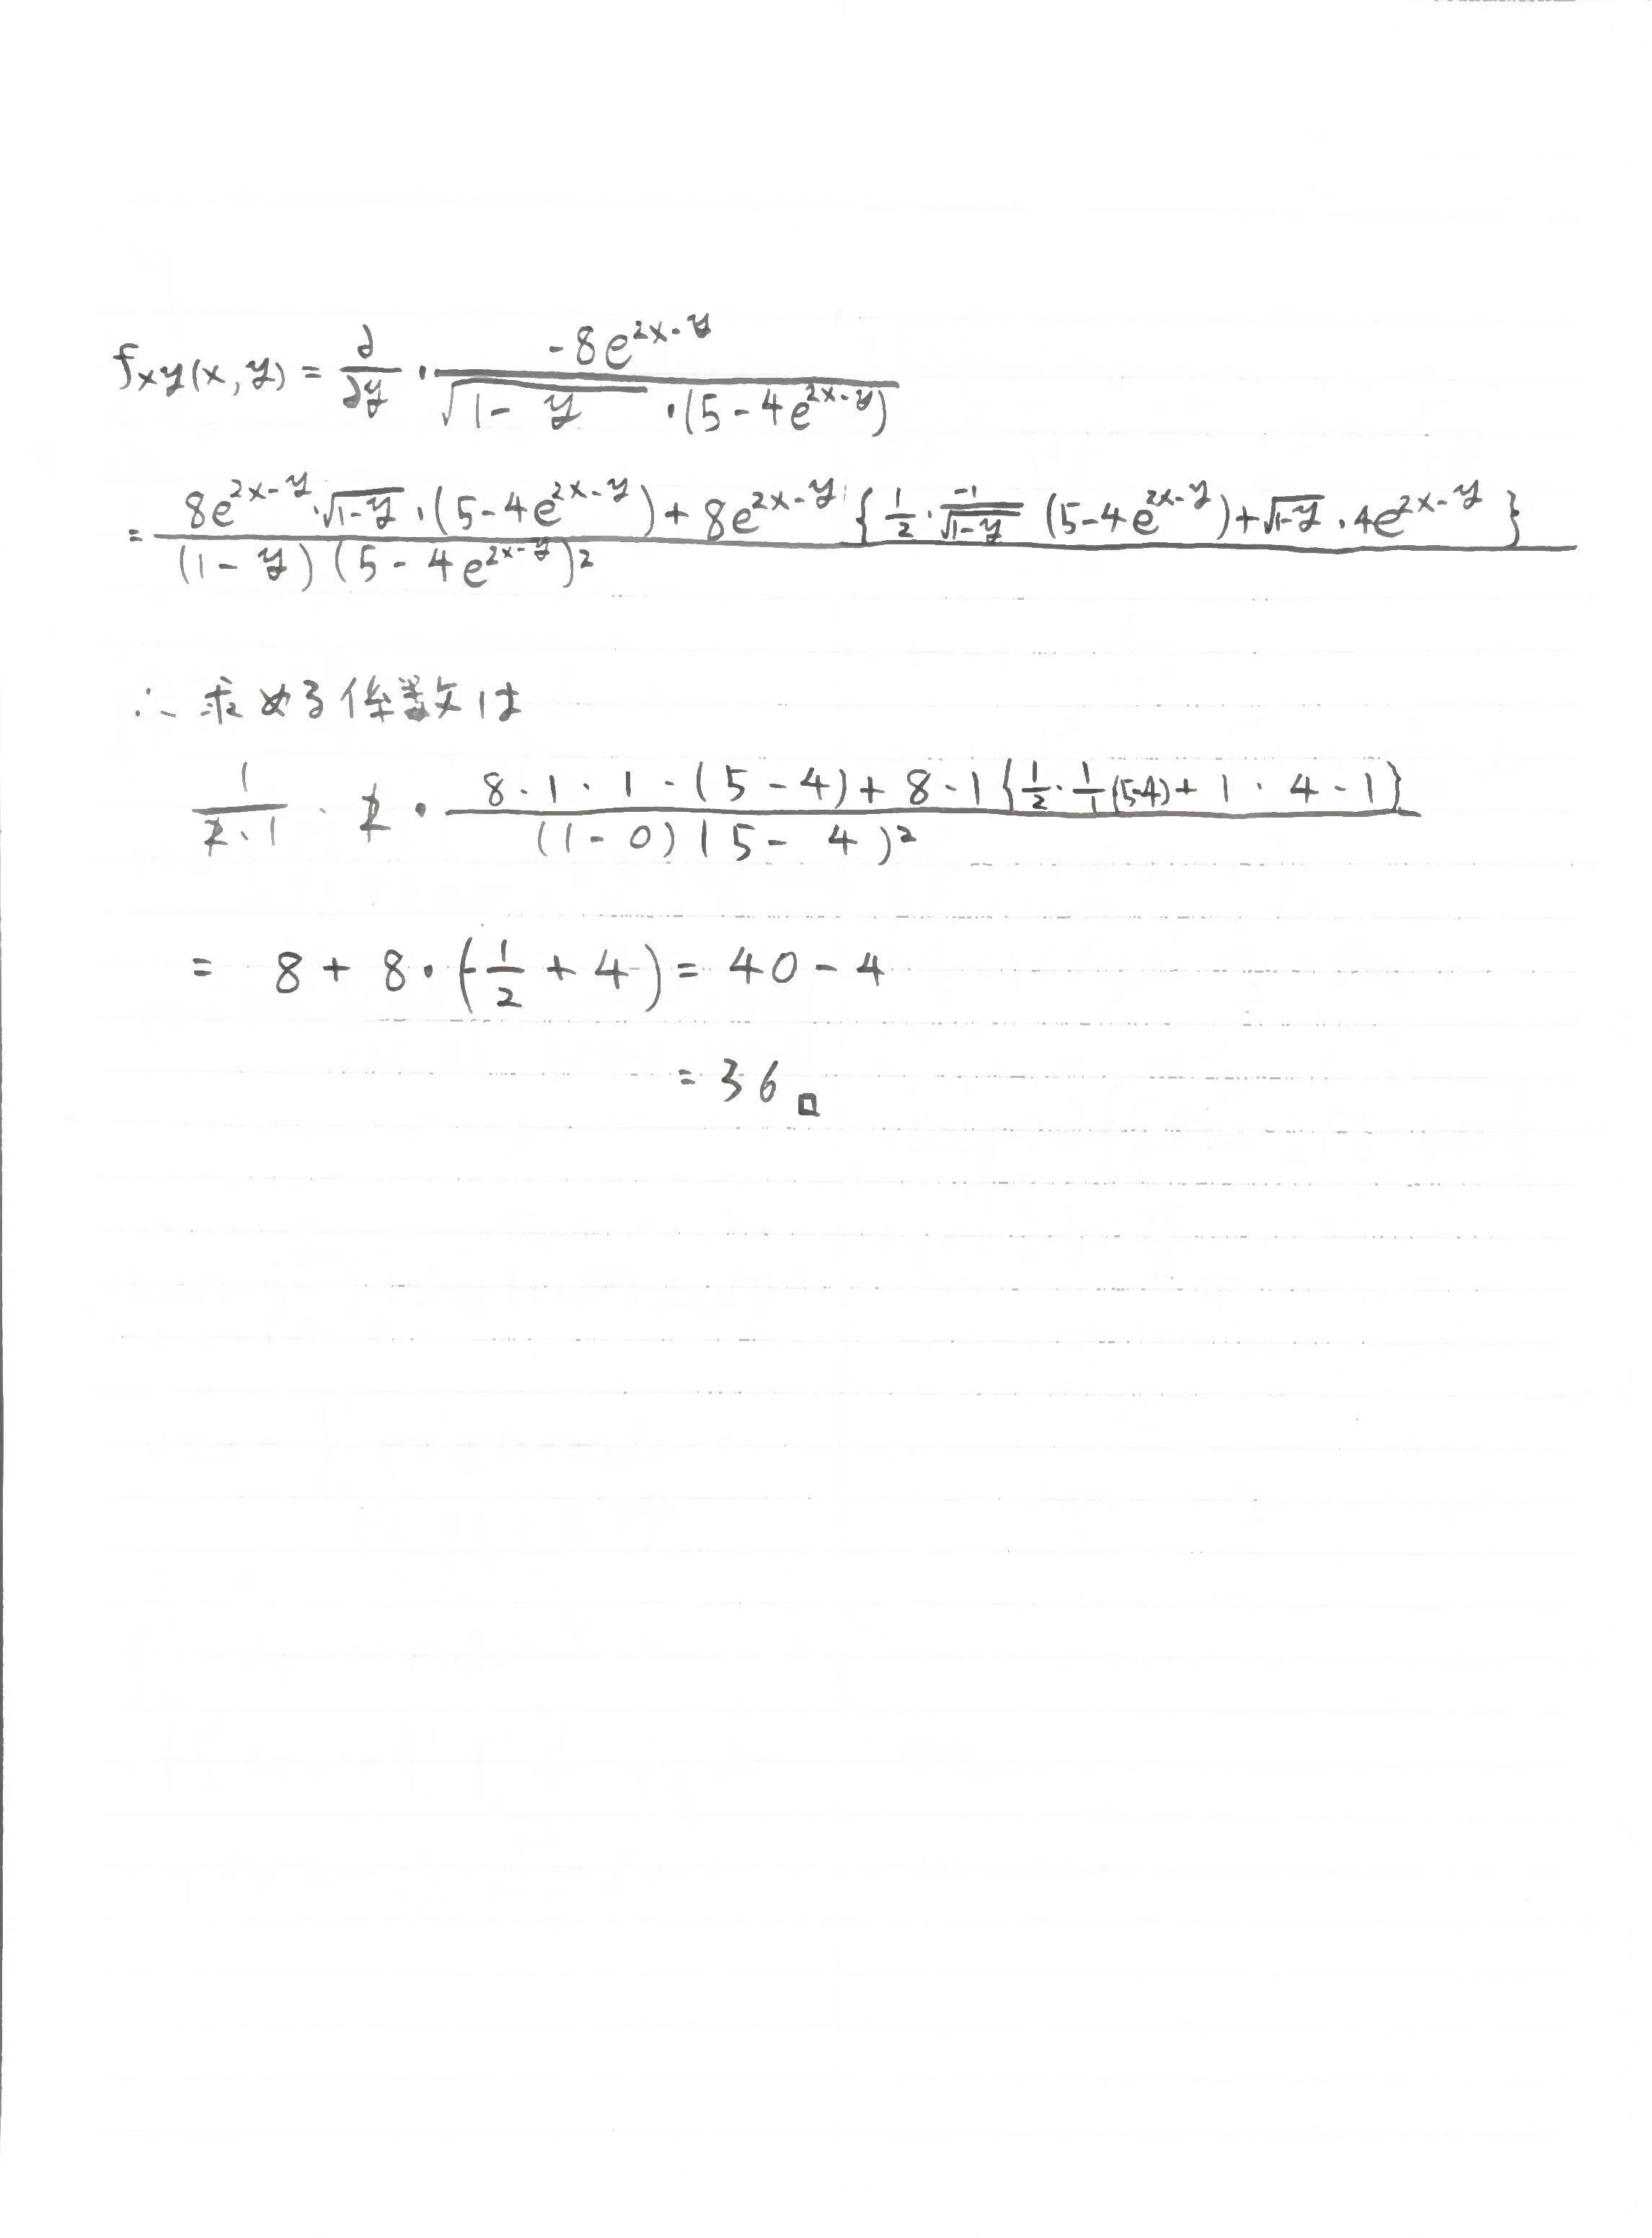 fxy(x, y) = ∂/∂y · -8e^{2x-y} / (√(1-y) · (5-4e^{2x-y}))
= (8e^{2x-y} · √(1-y) · (5-4e^{2x-y}) + 8e^{2x-y} {1/2 · -1/√(1-y) (5-4e^{2x-y}) + √(1-y) · 4e^{2x-y}}) / ((1-y)(5-4e^{2x-y})^2)
∴ 求める係数は
1/(2·1) · 2 · (8·1·1·(5-4) + 8·1{1/2 · 1/1 (5-4) + 1·4-1}) / ((1-0)(5-4)^2)
= 8 + 8·(-1/2 + 4) = 40 - 4
= 36 □